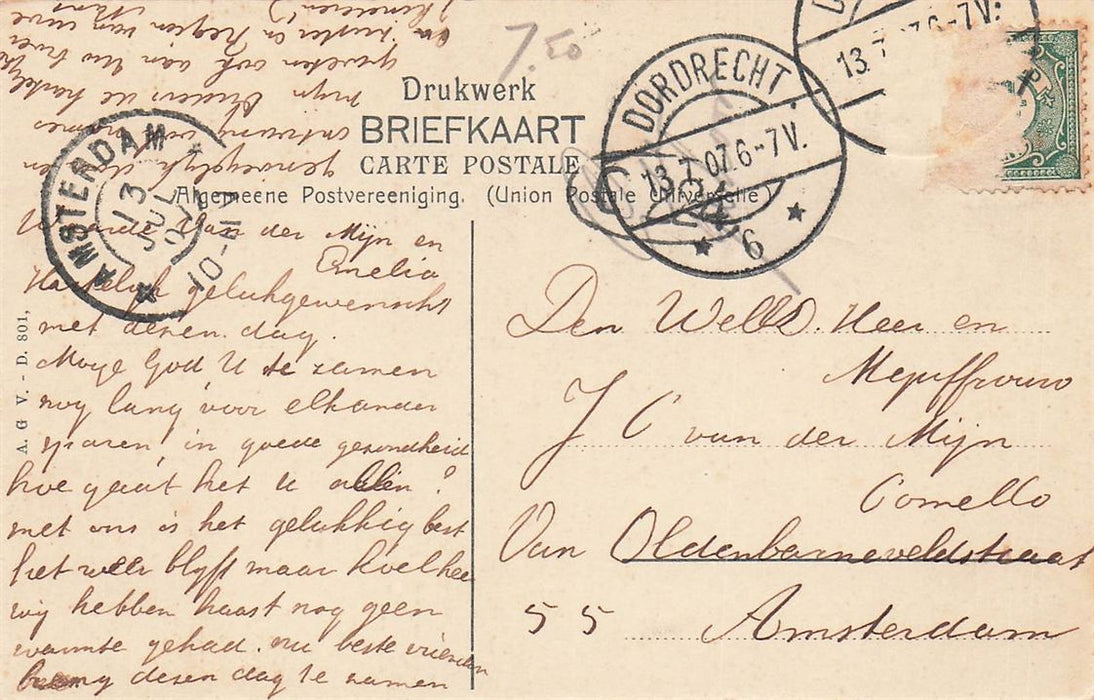 7.50
Drukwerk
BRIEFKAART
CARTE POSTALE
Algemeene Postvereeniging. (Union Postale Universelle)
DORDRECHT
13.7.07.6-7V.
6
13.7.07.6-7V:
AMSTERDAM
13
JUL
10-11V
A. G. V. - D. 801,
Waarde Van der Mijn en
Emelia
Hartelijk gelukgewenscht
met dezen dag.
Moge God U te zamen
nog lang voor elkander
sparen, in goede gezondheid
hoe gaat het U allen?
met ons is het gelukkig best
het weer blijft maar koel hee
wij hebben haast nog geen
warmte gehad. nu beste vrienden
dezen dag te zamen
genoegelijk
mijn Broer de hartelyke
groeten ook aan Uw Broer
en zuster en
kinderen)
Den WelEd. Heer en
Mejuffrouw
J C van der Mijn
Comello
Van Oldenbarneveldstraat
55 Amsterdam